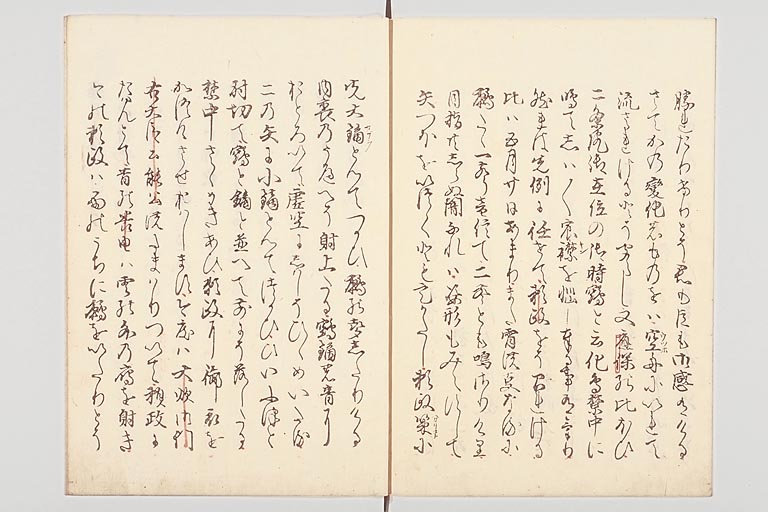 勝れたりけりとそ君も臣も御感有ける
さてかの変化のものをは空舟にいれて
流されけるとそ聞えし又応保の比ほひ
二条院御在位の御時鵺と云化鳥禁中に
鳴てしは〱宸襟を悩し奉る事有けり
然は先例に任せて頼政をそ召されける
比は五月廿日あまりまた宵の事なるに
鵺たゝ一声音信て二声とも鳴さりけり
目指ともしらぬ闇なれは姿形もみえすして
矢つほをいつくとも定かたし頼政策に
先大鏑をとてつかひ鵺の声したりける
内裏のうへゝそ射上たる鵺鏑の音に
おとろいて虚空にしはしひゝめいたる
二の矢に小鏑とてつかひひいふつと
射切て鵺と鏑と並へて前にそ落したる
禁中さゝめきあひ頼政に御衣を
かつけさせおはします此度は大炊御門
右大臣公能公給はりついて頼政に
とて昔の養由は雲の外の鴈を射き
今の頼政は雨のうちに鵺をいたりとそ